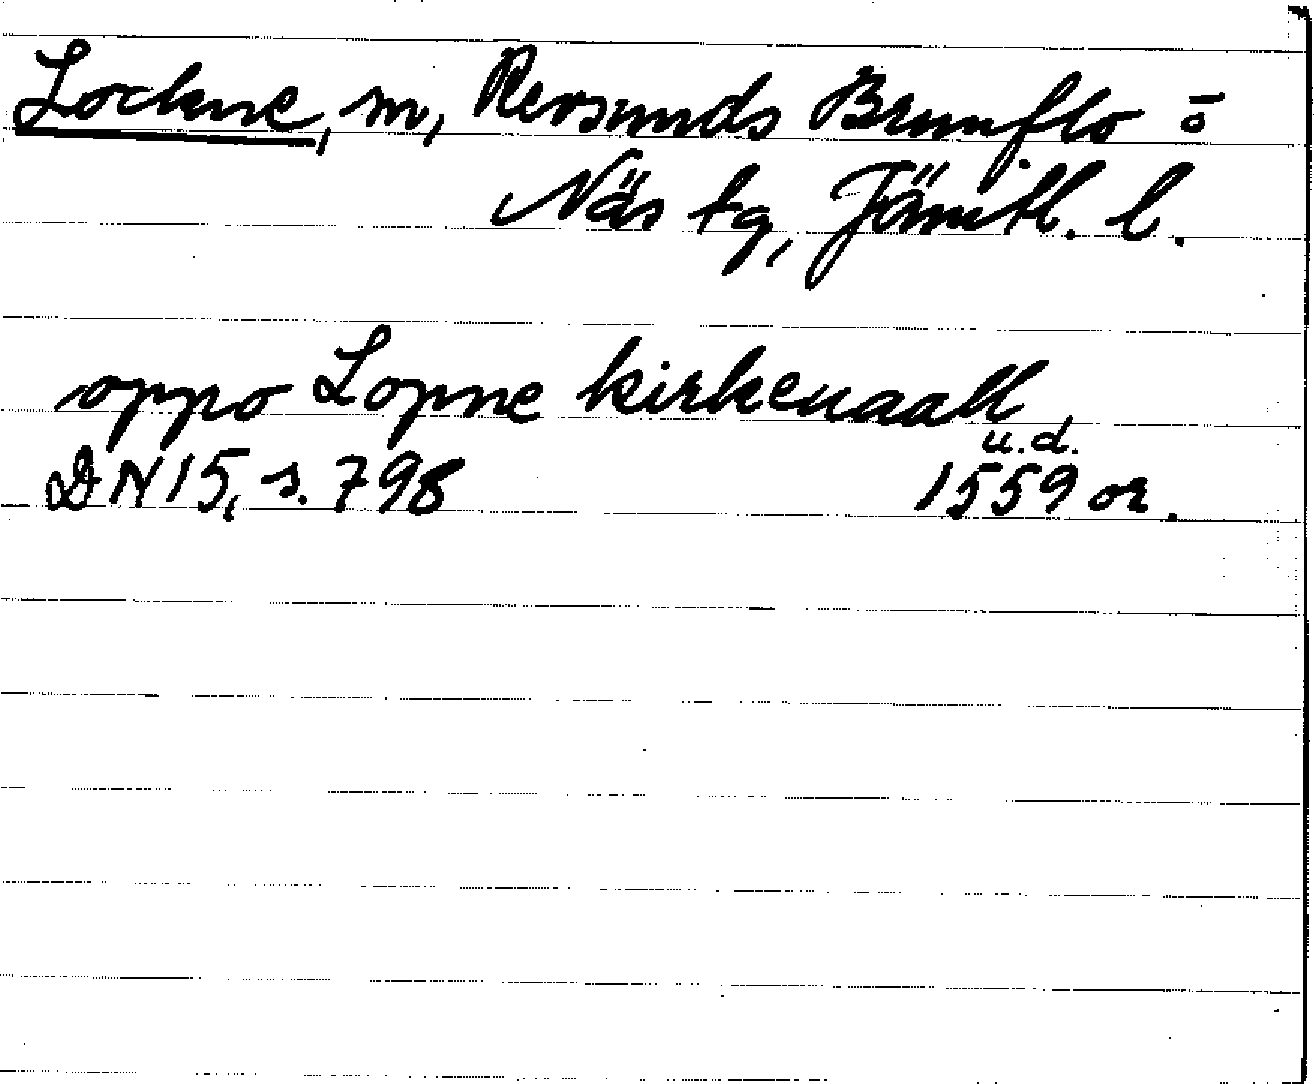 Lockne, sn, Revsunds Brunflo o
Näs tg, Jämtl. l.
oppo Lopne kirkeuaall
u.d.
DN 15, s. 798 1559 or.